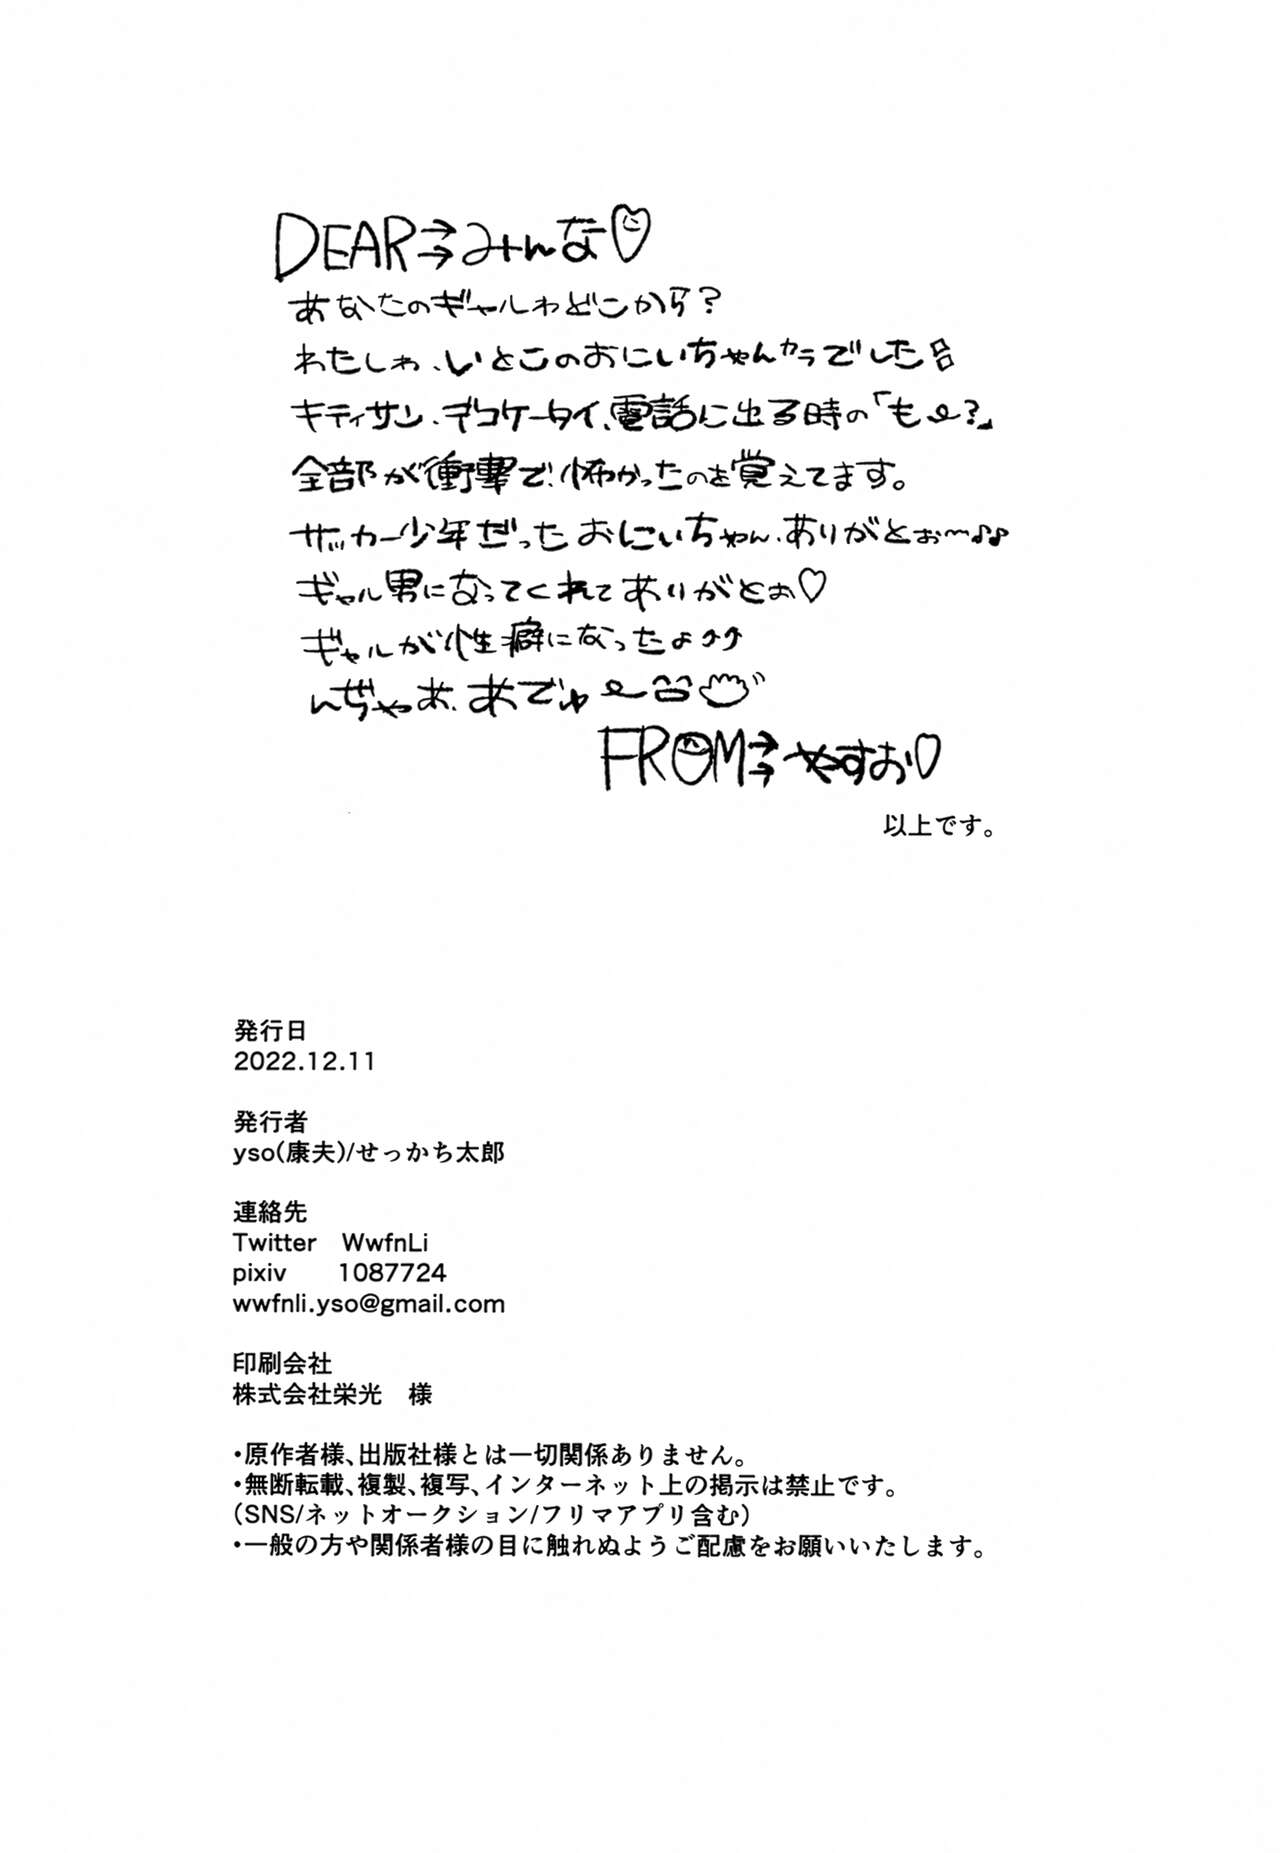 DEAR→→みんな♡
あなたのギャルゎどこから?
わたしゎ、いとこのおにいちゃんカラでした
キティサン、デコケータイ、電話に出る時の「もー?」
全部が衝撃で、怖かったのを覚えてます。
サッカー少年だったおにいちゃん、ありがとぉ〜♪♪
ギャル男になってくれてありがとぉ♡
ギャルが性癖になったょ⤴⤴
んぢゃぁ、あでゅー
FROM→→やすお♡
以上です。
発行日
2022.12.11
発行者
yso(康夫)/せっかち太郎
連絡先
Twitter WwfnLi
pixiv 1087724
wwfnli.yso@gmail.com
印刷会社
株式会社栄光 様
・原作者様、出版社様とは一切関係ありません。
・無断転載、複製、複写、インターネット上の掲示は禁止です。
(SNS/ネットオークション/フリマアプリ含む)
・一般の方や関係者様の目に触れぬようご配慮をお願いいたします。